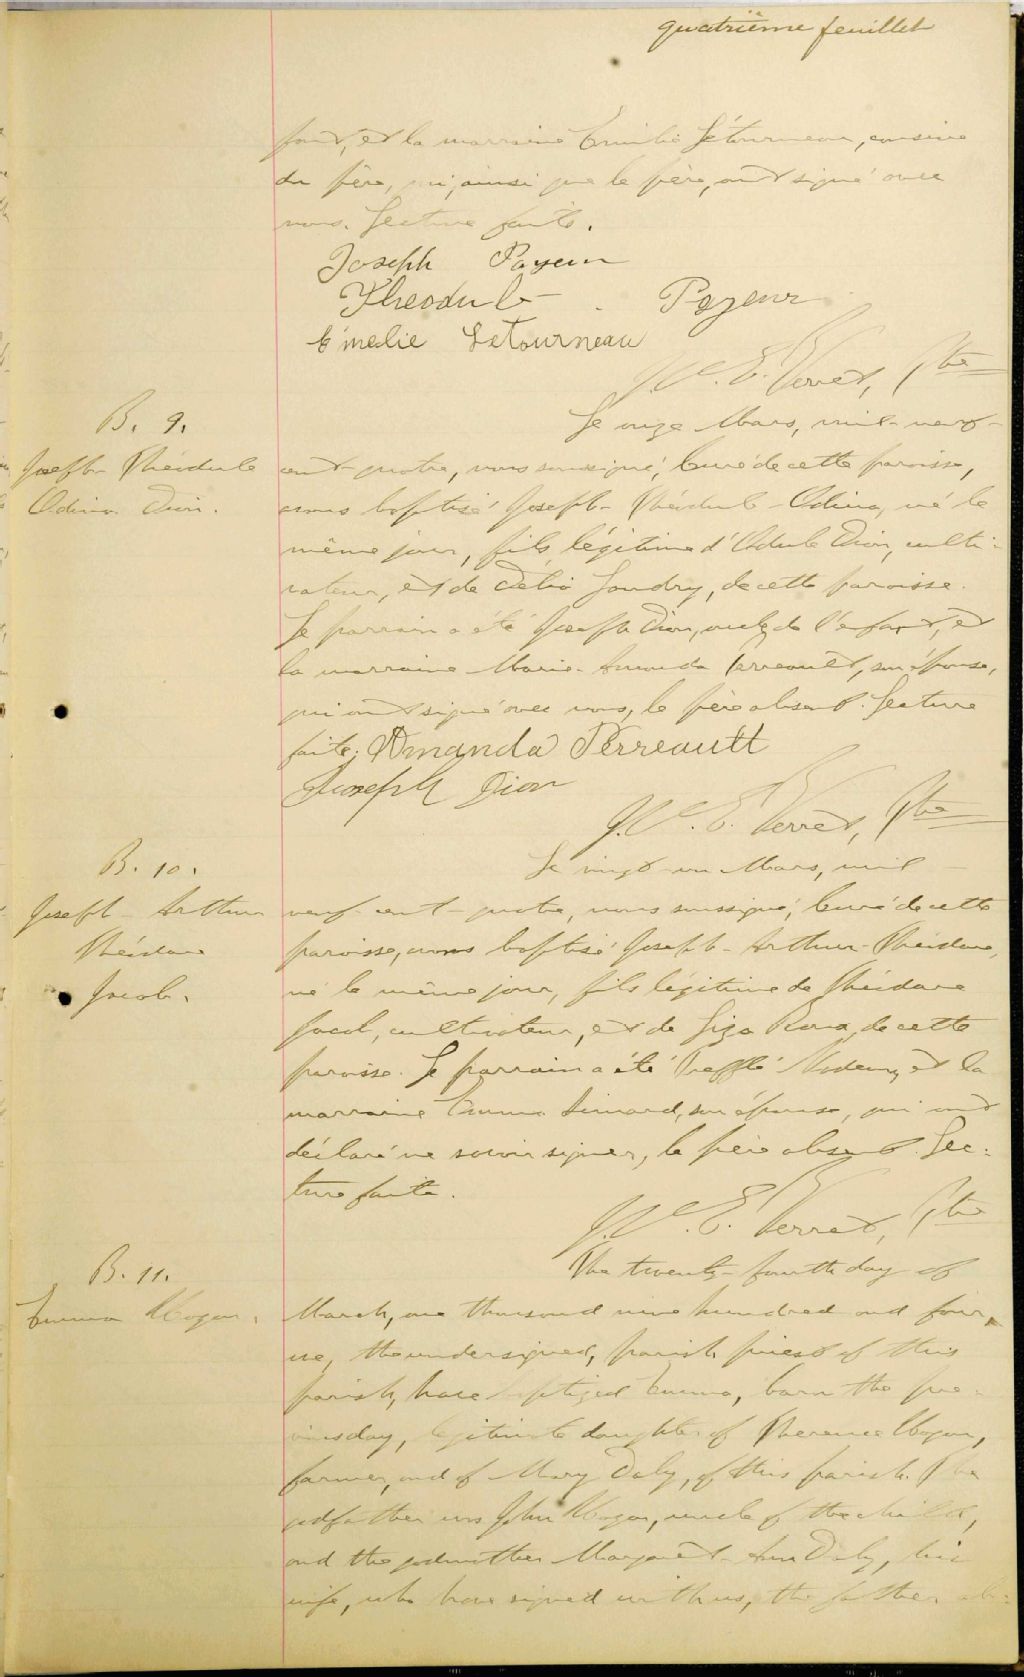 quatrième feuillet
fant, et la marraine Emilie Létourneau, cousine
du père, qui, ainsi que le père, ont signé avec
nous. Lecture faite.
Joseph Payeur
Theodule Payeur
Emelie Letourneau
J. E. Verret, Ptre
B. 9.
Joseph Théodule
Odina Dion.
Le onze Mars, mil-neuf-
cent-quatre, nous soussigné, Curé de cette paroisse,
avons baptisé Joseph-Théodule-Odina, né le
même jour, fils légitime d'Odule Dion, culti-
vateur, et de Délia Landry, de cette paroisse.
Le parrain a été Joseph Dion, oncle de l'enfant, et
la marraine Marie-Amanda Perreault, son épouse,
qui ont signé avec nous, le père absent. Lecture
faite. Amanda Perreault
Joseph Dion
J. E. Verret, Ptre
B. 10.
Joseph-Arthur
Théodore
Jacob.
Le vingt-un Mars, mil-
neuf-cent-quatre, nous soussigné, Curé de cette
paroisse, avons baptisé Joseph-Arthur-Théodore,
né le même jour, fils légitime de Théodore
Jacob, cultivateur, et de Roux, de cette
paroisse. Le parrain a été Trefflé Nadeau, et la
marraine Emma Simard, son épouse, qui ont
déclaré ne savoir signer, le père absent. Lec-
ture faite.
J. E. Verret, Ptre
B. 11.
Emma Hogan.
The twenty-fourth day of
March, one thousand nine hundred and four,
we, the undersigned, parish priest of this
parish, have baptized Emma, born the pre-
vious day, legitimate daughter of Therence Hogan,
farmer, and of Mary Daly, of this parish. The
godfather was John Hogan, uncle of the child,
and the godmother Margaret-Ann Daly, his
wife, who have signed with us, the father ab-